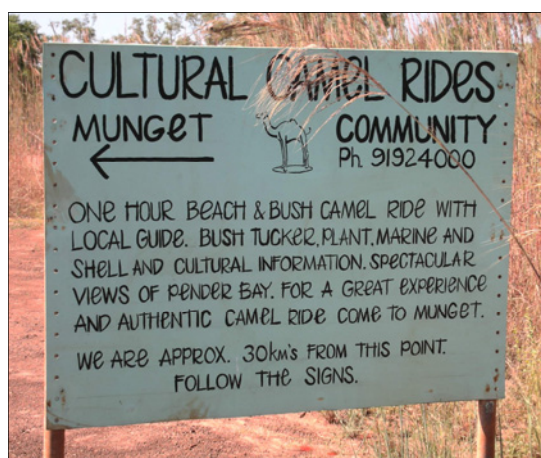 CULTURAL CAMEL RIDES
MUNGET COMMUNITY
Ph. 91924000
ONE HOUR BEACH & BUSH CAMEL RIDE WITH
LOCAL GUIDE. BUSH TUCKER, PLANT, MARINE AND
SHELL AND CULTURAL INFORMATION. SPECTACULAR
VIEWS OF PENDER BAY. FOR A GREAT EXPERIENCE
AND AUTHENTIC CAMEL RIDE COME TO MUNGET.
WE ARE APPROX. 30km's FROM THIS POINT.
FOLLOW THE SIGNS.